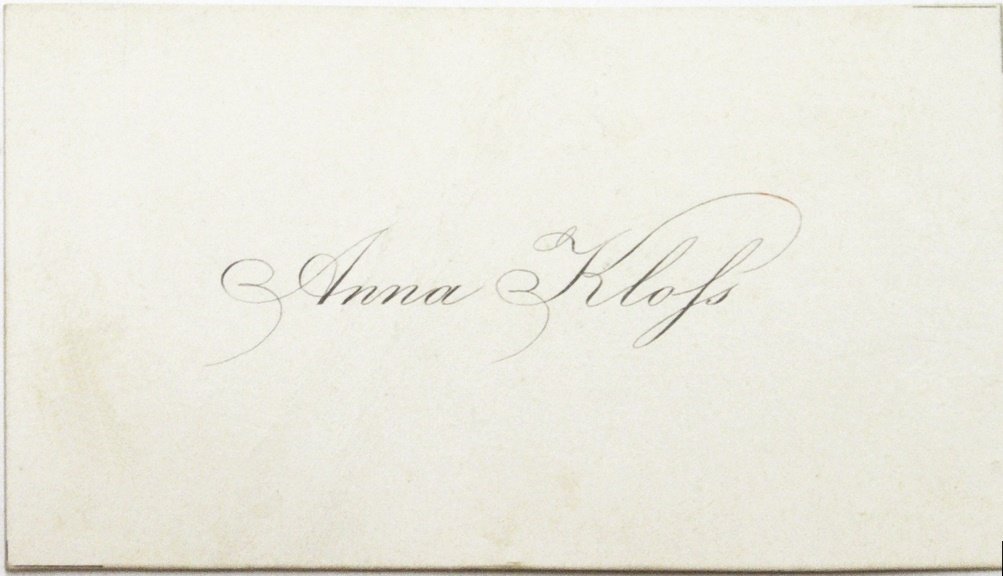 Anna Kloſs